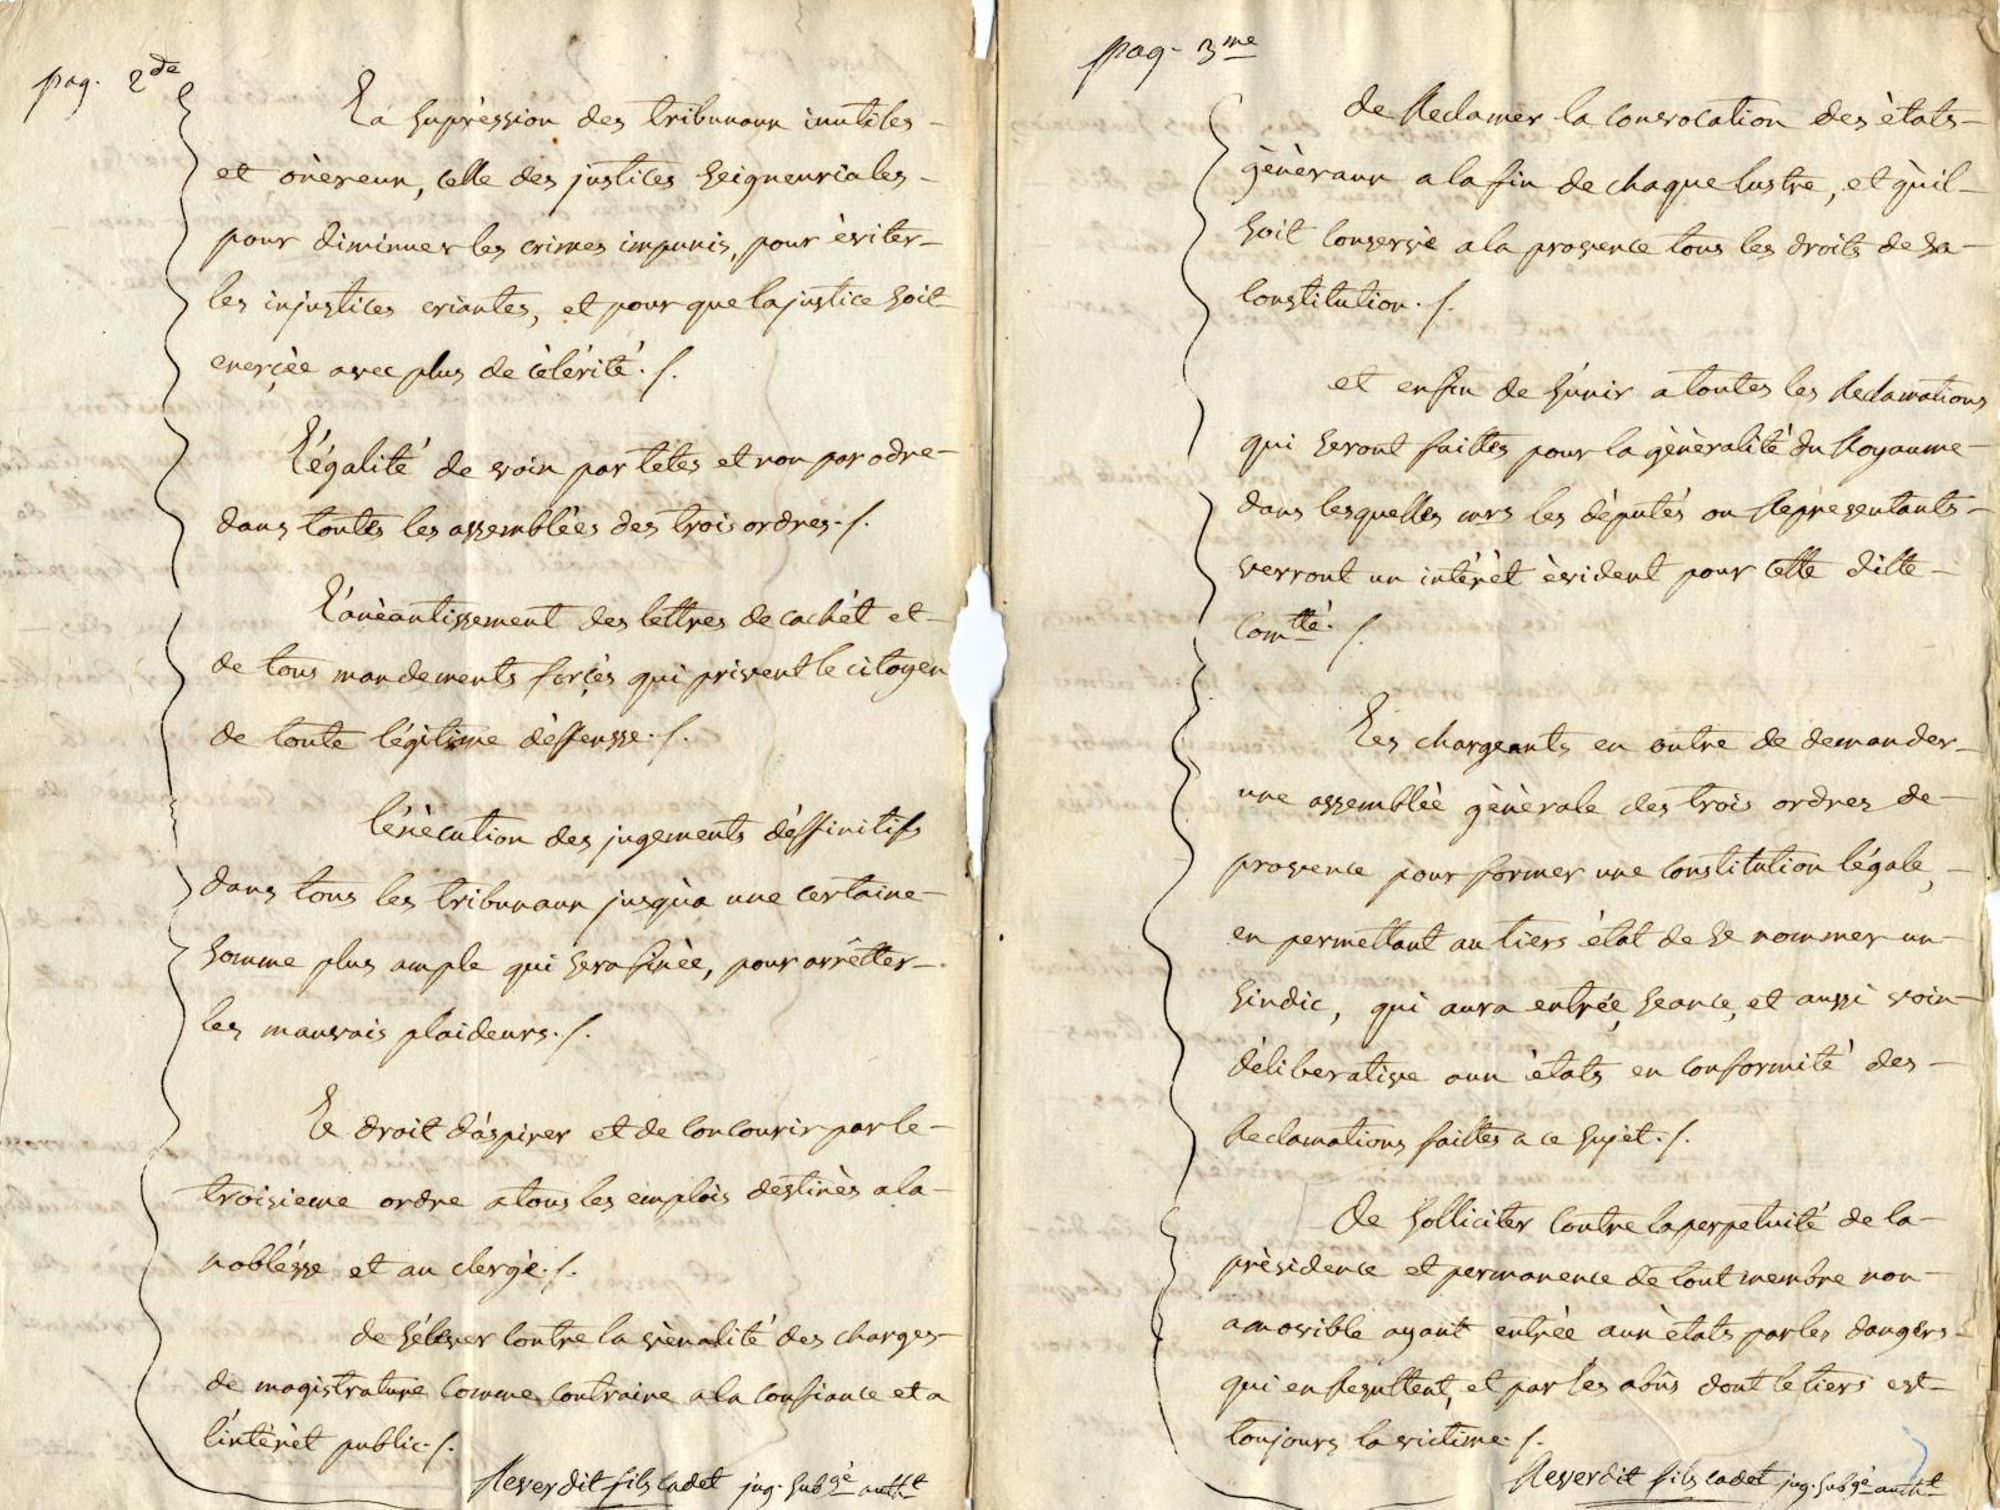 pag. 2de
La supréssion des tribunaux inutiles -
et onèreux, celle des justices seigneuriales -
pour diminuer les crimes impunis, pour èviter -
les injustices criantes, et pour que la justice soit -
exerçèe avec plus de cèlérité. /.
L'égalité de voix par tètes et non par odre -
dans toutes les assemblèes des trois ordres. /.
L'anèantissement des lettres de cachèt et -
de tous mandements forçés qui privent le citoyen
de toute légitime dèffensse. /.
l'éxècution des jugements dèffinitifs
dans tous les tribunaux jusqu'a une certaine -
somme plus ample qui sera fixèe, pour arrêtter -
les mauvais plaideurs. /.
Le droit d'aspirer et de concourir par le -
troisieme ordre a tous les emplois destinès a la -
noblésse et au clergè. /.
de s'élever contre la vènalité des charges -
de magistrature comme contraire a la confiance et a
l'intèrèt public. /.
Reverdit fils cadet jug. subgé autht
pag. 3me
de Reclamer la convocation des ètats -
gènèraux a la fin de chaque lustre, et qu'il -
soit conservè a la provence tous les droits de sa -
constitution. /.
et enfin de s'unir a toutes les Reclamations
qui seront faittes pour la gènèralité du Royaume -
dans lesquelles mrs les dèputés ou Représentants -
verront un intérèt èvident pour cette ditte -
comtté. /.
Les chargeants en outre de demander -
une assemblèe gènèrale des trois ordres de -
provence pour former une constitution légale, -
en permettant au tiers état de se nommer un -
sindic, qui aura entrée, seance, et aussi voix -
dèliberative aux ètats en conformité des -
Reclamations faittes a ce sujèt. /.
De solliciter contre la perpetuité de la -
prèsidence et permanence de tout membre non -
amovible ayant entrèe aux ètats par les dangers -
qui en Resultent, et par les abus dont le tiers est -
toujours la victime. /.
Reverdit fils cadet jug. subgé autht